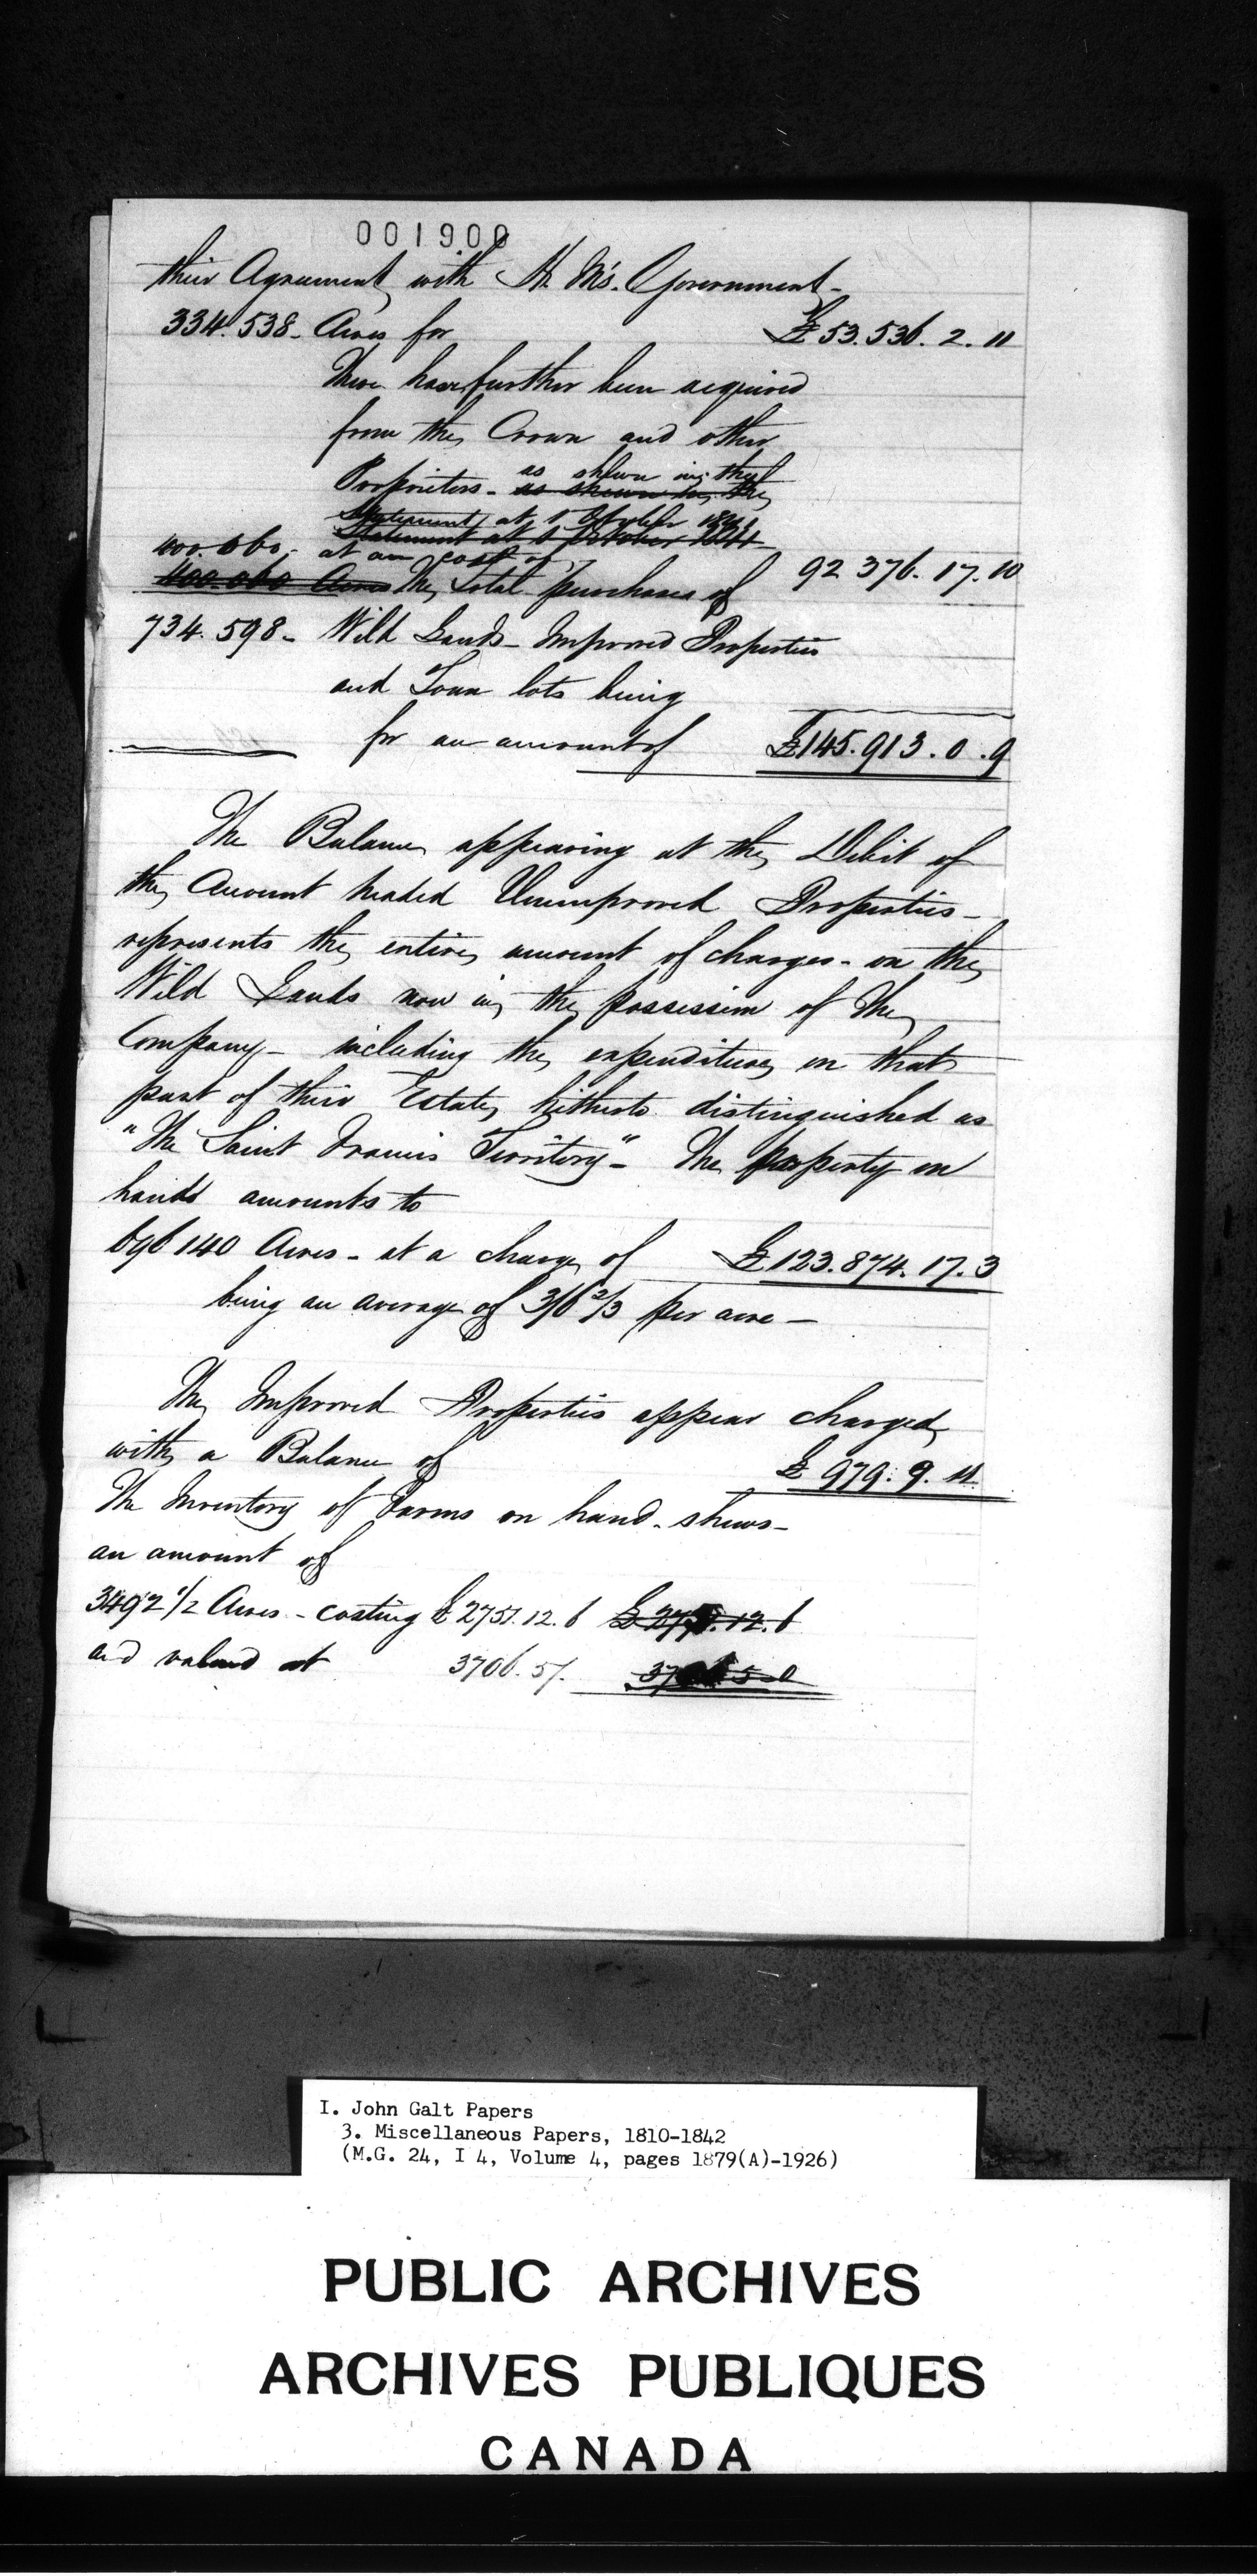 001900
their Agreement with H. M's. Government -
334.538 - Acres for £53.536. 2. 11
There have further been acquired
from the Crown and other
Proprietors - as shewn in the
as shewn in the
Statement at 1 October
Statement at 1 October 1844
400.060. at an cost of 92 376. 17. 10
400.060 Acres The Total purchases of
734.598 - Wild Lands - Improved Properties
and Town lots being
for an amount of £145.913. 0. 9
The Balance appearing at the Debit of
the Account headed Unimproved Properties -
represents the entire amount of charges - on the
Wild Lands now in the possession of The
Company - including the expenditure on that
part of their Estate, hitherto distinguished as
"The Saint Francis Territory" - The property on
hand amounts to
696 140 Acres - at a charge of £123.874. 17. 3
being an average of 3/6 2/3 per acre -
The Improved Properties appear charged
with a Balance of £979. 9. 11
The Inventory of Farms on hand - shews -
an amount of
3492 1/2 Acres - costing £2751. 12. 6 £ 2751. 12. 6
and valued at 3706. 5/. 3706 5 - 0
I. John Galt Papers
3. Miscellaneous Papers, 1810-1842
(M.G. 24, I 4, Volume 4, pages 1879(A)-1926)
PUBLIC ARCHIVES
ARCHIVES PUBLIQUES
CANADA